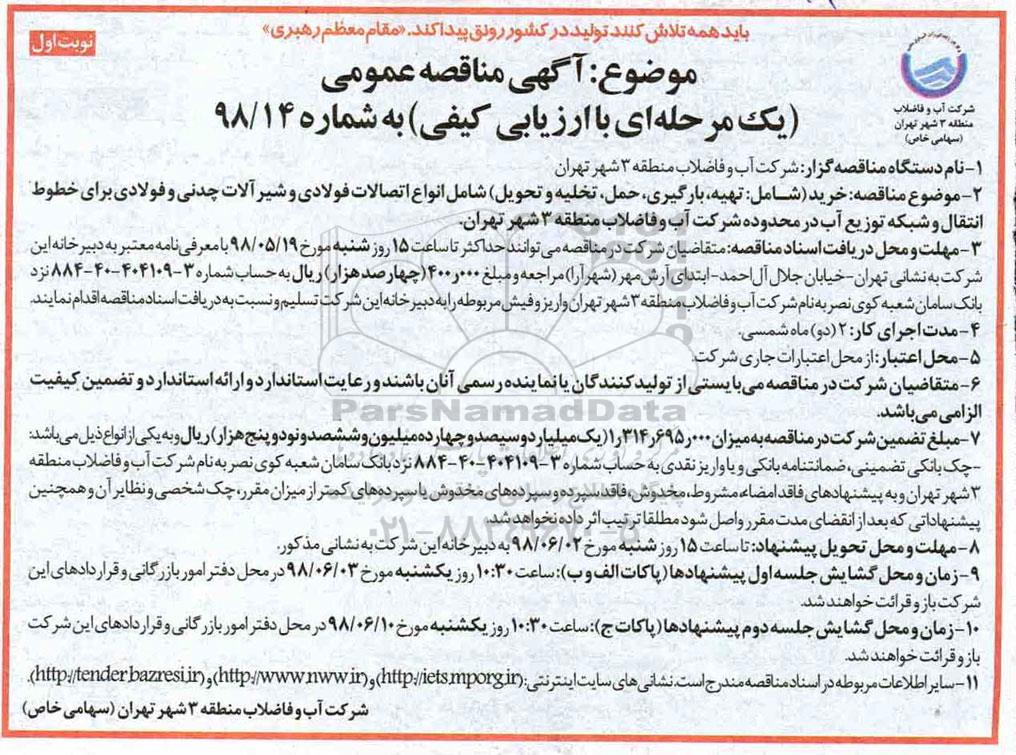 باید همه تلاش کنند تولید در کشور رونق پیدا کند. «مقام معظم رهبری»
نوبت اول
شرکت آب و فاضلاب
منطقه ۳ شهر تهران
(سهامی خاص)
موضوع: آگهی مناقصه عمومی
(یک مرحله‌ای با ارزیابی کیفی) به شماره ۹۸/۱۴
۱-نام دستگاه مناقصه گزار: شرکت آب و فاضلاب منطقه ۳ شهر تهران
۲-موضوع مناقصه: خرید (شامل: تهیه، بارگیری، حمل، تخلیه و تحویل) شامل انواع اتصالات فولادی و شیرآلات چدنی و فولادی برای خطوط
انتقال و شبکه توزیع آب در محدوده شرکت آب و فاضلاب منطقه ۳ شهر تهران.
۳-مهلت و محل دریافت اسناد مناقصه: متقاضیان شرکت در مناقصه می‌توانند حداکثر تا ساعت ۱۵ روز شنبه مورخ ۹۸/۰۵/۱۹ با معرفی نامه معتبر به دبیرخانه این
شرکت به نشانی تهران-خیابان جلال آل‌احمد-ابتدای آرش مهر (شهرآرا) مراجعه و مبلغ ۴۰۰٫۰۰۰ (چهارصد هزار) ریال به حساب شماره ۳-۴۰۴۱۰۹-۴۰-۸۸۴ نزد
بانک سامان شعبه کوی نصر به نام شرکت آب و فاضلاب منطقه ۳ شهر تهران واریز و فیش مربوطه را به دبیرخانه این شرکت تسلیم و نسبت به دریافت اسناد مناقصه اقدام نمایند.
۴-مدت اجرای کار: ۲ (دو) ماه شمسی.
۵-محل اعتبار: از محل اعتبارات جاری شرکت.
۶-متقاضیان شرکت در مناقصه می‌بایستی از تولیدکنندگان یا نماینده رسمی آنان باشند و رعایت استاندارد و ارائه استاندارد و تضمین کیفیت
الزامی می‌باشد.
ParsNamadData
۷-مبلغ تضمین شرکت در مناقصه به میزان ۱٫۳۱۴٫۶۹۵٫۰۰۰ (یک میلیارد و سیصد و چهارده میلیون و ششصد و نود و پنج هزار) ریال و به یکی از انواع ذیل می‌باشد:
-چک بانکی تضمینی، ضمانتنامه بانکی و یا واریز نقدی به حساب شماره ۳-۴۰۴۱۰۹-۲۰-۸۸۴ نزد بانک سامان شعبه کوی نصر به نام شرکت آب و فاضلاب منطقه
۳ شهر تهران و به پیشنهادهای فاقد امضاء، مشروط، مخدوش، فاقد سپرده و سپرده‌های مخدوش یا سپرده‌های کمتر از میزان مقرر، چک شخصی و نظایر آن و همچنین
پیشنهاداتی که بعد از انقضای مدت مقرر واصل شود مطلقا ترتیب اثر داده نخواهد شد.
۰۲۱-۸۸۳۴۹۶۷۰-۵
۸-مهلت و محل تحویل پیشنهاد: تا ساعت ۱۵ روز شنبه مورخ ۹۸/۰۶/۰۲ به دبیرخانه این شرکت به نشانی مذکور.
۹-زمان و محل گشایش جلسه اول پیشنهادها (پاکات الف و ب): ساعت ۱۰:۳۰ روز یکشنبه مورخ ۹۸/۰۶/۰۳ در محل دفتر امور بازرگانی و قراردادهای این
شرکت باز و قرائت خواهند شد.
۱۰-زمان و محل گشایش جلسه دوم پیشنهادها (پاکات ج): ساعت ۱۰:۳۰ روز یکشنبه مورخ ۹۸/۰۶/۱۰ در محل دفتر امور بازرگانی و قراردادهای این شرکت
باز و قرائت خواهند شد.
۱۱-سایر اطلاعات مربوطه در اسناد مناقصه مندرج است. نشانی‌های سایت اینترنتی: (http://iets.mporg.ir) و (http://www.nww.ir) و (http://tender.bazresi.ir).
شرکت آب و فاضلاب منطقه ۳ شهر تهران (سهامی خاص)